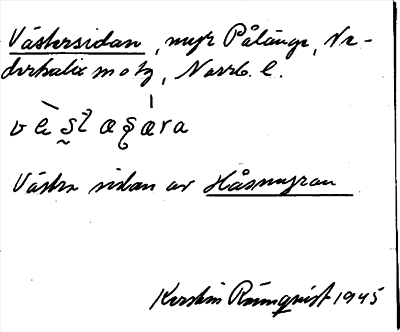 Västersidan, myr Pålänge, Ne-
derkalix motg, Norrb. l.
Västra sidan av Håsmyran
Kerstin Rönnqvist 1945